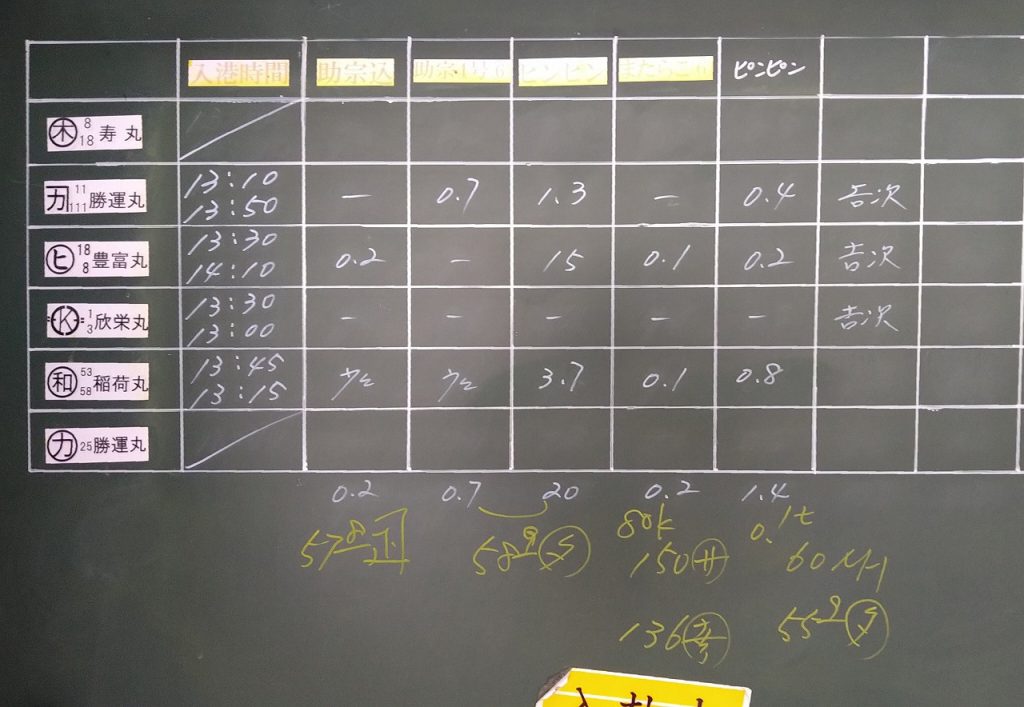 入港時間 助宗込 助宗1号 ピンピン またらこ ピンピン
木 8 18 寿丸
力 11 111 勝運丸 13:10 13:50 — 0.7 1.3 — 0.4 吉次
ヒ 18 8 豊富丸 13:30 14:10 0.2 — 15 0.1 0.2 吉次
K 1 3 欣栄丸 13:30 13:00 — — — — — 吉次
和 53 58 稲荷丸 13:45 13:15 3.7 0.1 0.8
力 25 勝運丸
0.2 0.7 20 0.2 1.4
80k 0.1t
150
136